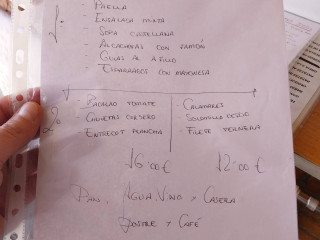 1º
- PAELLA
- ENSALADA MIXTA
- SOPA CASTELLANA
- ALCACHOFAS CON JAMÓN
- GULAS AL AJILLO
- ESPARRAGOS CON MAHONESA
2º
- BACALAO TOMATE
- CHULETAS CORDERO
- ENTRECOT PLANCHA
- CALAMARES
- SOLOMILLO CERDO
- FILETE TERNERA
16'00€ 12'00€
PAN, AGUA, VINO Y CASERA
POSTRE Y CAFÉ